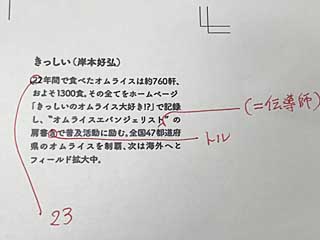 きっしい（岸本好弘）
22年間で食べたオムライスは約760軒、
およそ1300食。その全てをホームページ
「きっしいのオムライス大好き!?」で記録
し、“オムライスエバンジェリスト”の
(＝伝導師)
肩書きで普及活動に励む。全国47都道府
トル
県のオムライスを制覇、次は海外へと
フィールド拡大中。
23